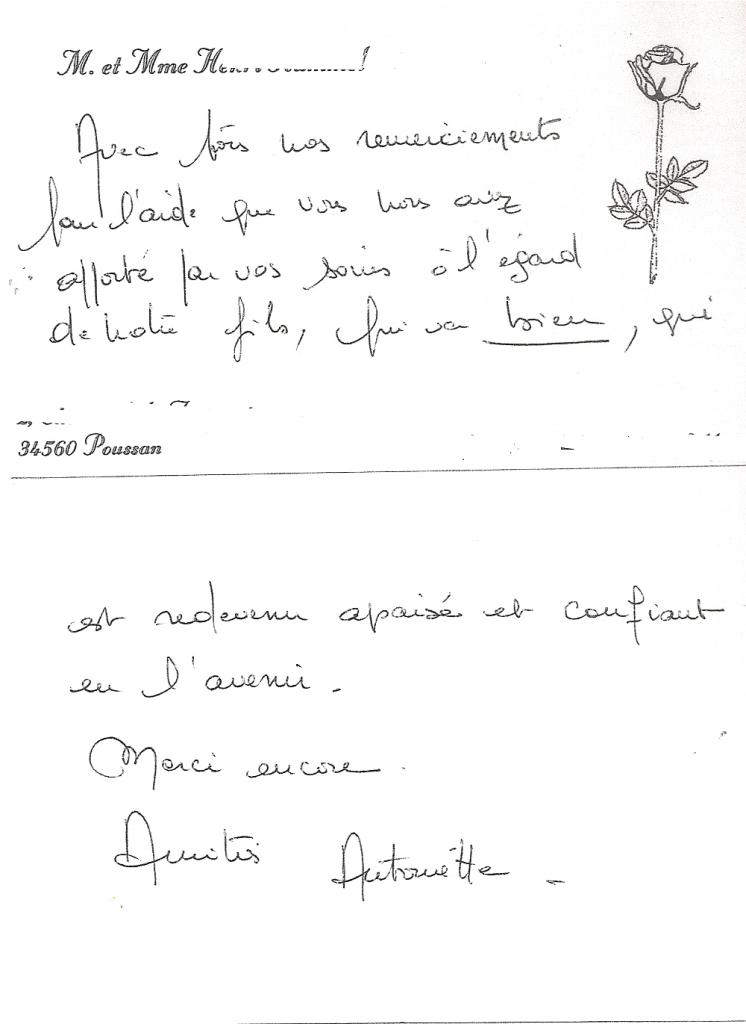 M. et Mme
Avec tous nos remerciements
pour l'aide que vous nous avez
apporté par vos soins à l'égard
de notre fils, qui va bien, qui
34560 Poussan
est redevenu apaisé et confiant
en l'avenir.
Merci encore.
Amitiés Antoinette.